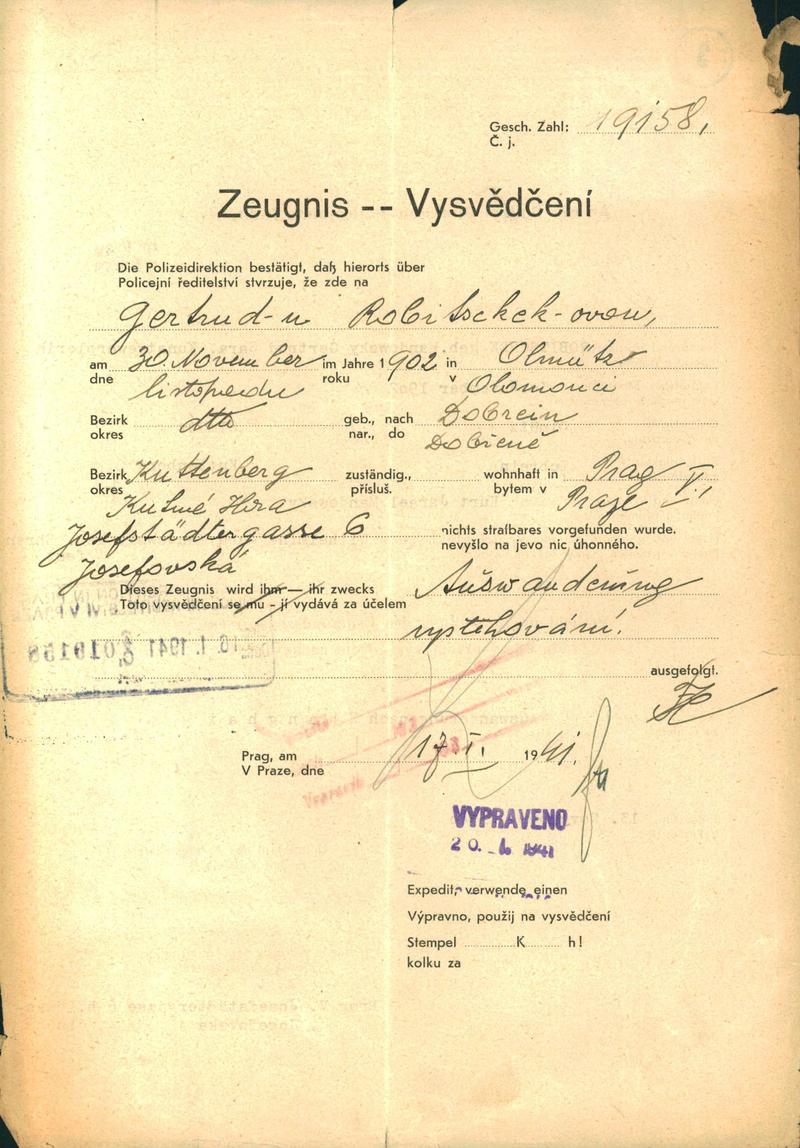 Gesch. Zahl: 19158,
Č. j.
Zeugnis -- Vysvědčení
Die Polizeidirektion bestätigt, daß hierorts über
Policejní ředitelství stvrzuje, že zde na
Gertrud-u Robitschek-ovou,
am 30. November im Jahre 1902 in Olmütz
dne listopadu roku v Olomouci
Bezirk dtto geb., nach Dobrein
okres nar., do Dobřeně
Bezirk Kuttenberg zuständig., wohnhaft in Prag V.,
okres Kutné Hora přísluš. bytem v Praze
Josefstädtergasse 6 nichts strafbares vorgefunden wurde.
Josefovská nevyšlo na jevo nic úhonného.
Dieses Zeugnis wird ihm — ihr zwecks Auswanderung
Toto vysvědčení se mu - jí vydává za účelem
vystěhování.
ausgefolgt.
Prag, am 17. I. 1941.
V Praze, dne
VYPRAVENO
20. 1941
Expedit, verwende einen
Výpravno, použij na vysvědčení
Stempel K h!
kolku za